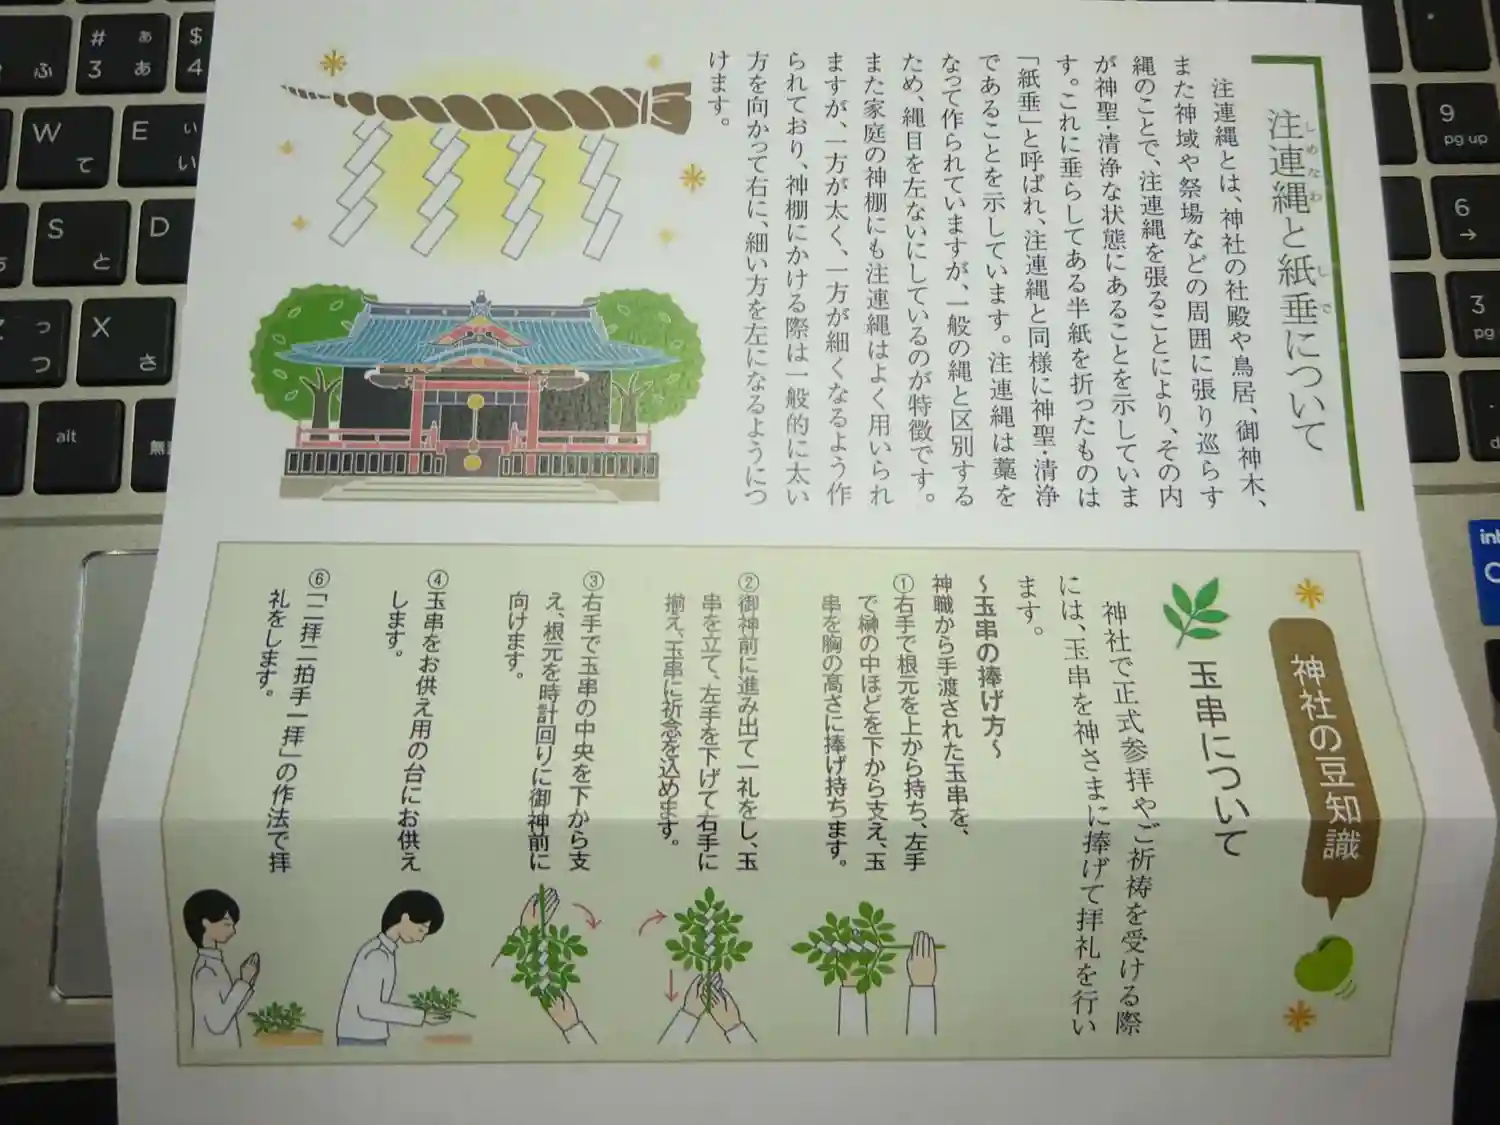 注連縄と紙垂について
しめなわ
しで
注連縄とは、神社の社殿や鳥居、御神木、
また神域や祭場などの周囲に張り巡らす
縄のことで、注連縄を張ることにより、その内
が神聖・清浄な状態にあることを示していま
す。これに垂らしてある半紙を折ったものは
「紙垂」と呼ばれ、注連縄と同様に神聖・清浄
であることを示しています。注連縄は藁を
なって作られていますが、一般の縄と区別する
ため、縄目を左ないにしているのが特徴です。
また家庭の神棚にも注連縄はよく用いられ
ますが、一方が太く、一方が細くなるよう作
られており、神棚にかける際は一般的に太い
方を向かって右に、細い方を左になるようにつ
けます。
神社の豆知識
玉串について
神社で正式参拝やご祈祷を受ける際
には、玉串を神さまに捧げて拝礼を行い
ます。
〜玉串の捧げ方〜
神職から手渡された玉串を、
①右手で根元を上から持ち、左手
で榊の中ほどを下から支え、玉
串を胸の高さに捧げ持ちます。
②御神前に進み出て一礼をし、玉
串を立て、左手を下げて右手に
揃え、玉串に祈念を込めます。
③右手で玉串の中央を下から支
え、根元を時計回りに御神前に
向けます。
④玉串をお供え用の台にお供え
します。
⑥「二拝二拍手一拝」の作法で拝
礼をします。
#
3
ぁ
あ
$
4
ふ
W
て
E
ぃ
い
S
と
D
っ
つ
X
さ
alt
無
9
pg up
6
→
3
pg